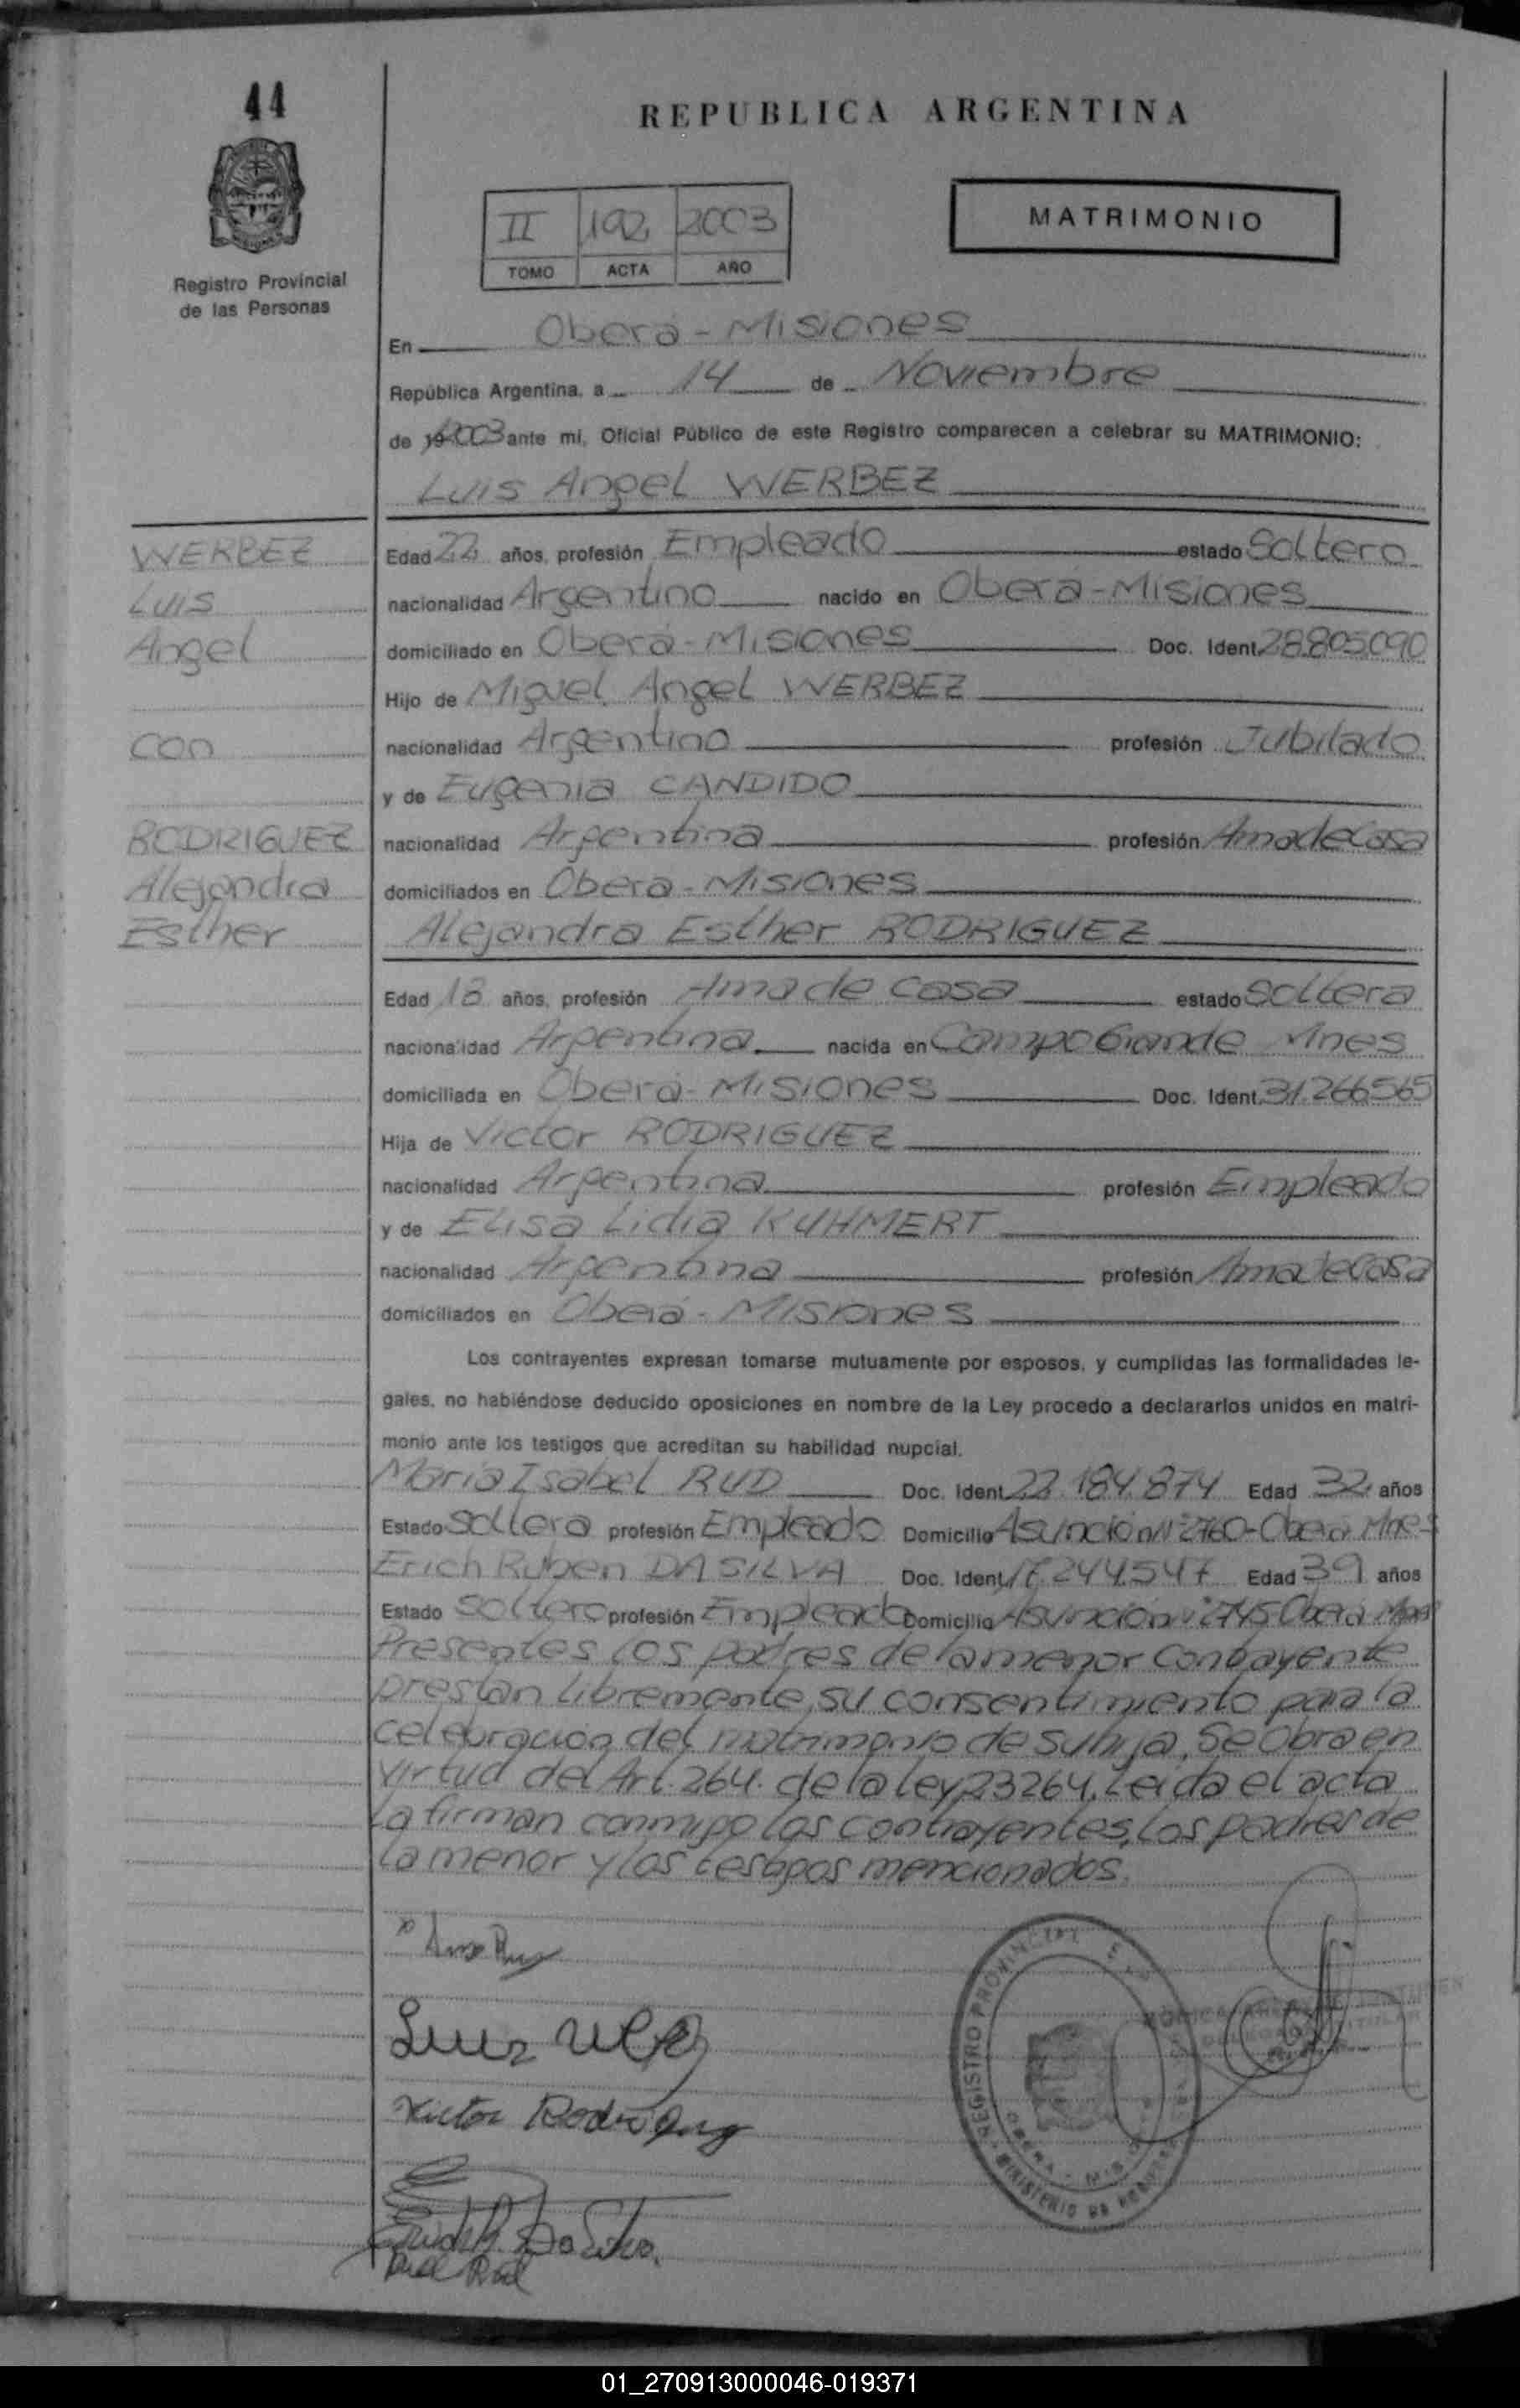 44
REPUBLICA ARGENTINA
Registro Provincial
de las Personas
II 192 2003
TOMO ACTA AÑO
MATRIMONIO
En Oberá - Misiones
República Argentina, a 14 de Noviembre
de 2003 ante mi, Oficial Público de este Registro comparecen a celebrar su MATRIMONIO:
Luis Angel WERBEZ
WERBEZ
Luis
Angel
con
RODRIGUEZ
Alejandra
Esther
Edad 22 años, profesión Empleado estado Soltero
nacionalidad Argentino nacido en Oberá - Misiones
domiciliado en Oberá - Misiones Doc. Ident. 28.805.090
Hijo de Miguel Angel WERBEZ
nacionalidad Argentino profesión Jubilado
y de Eugenia CANDIDO
nacionalidad Argentina profesión Ama de Casa
domiciliados en Oberá - Misiones
Alejandra Esther RODRIGUEZ
Edad 18 años, profesión Ama de Casa estado Soltera
nacionalidad Argentina nacida en Campo Grande Mnes
domiciliada en Oberá - Misiones Doc. Ident. 31.266.565
Hija de Victor RODRIGUEZ
nacionalidad Argentina profesión Empleado
y de Elisa Lidia KUHMERT
nacionalidad Argentina profesión Ama de Casa
domiciliados en Oberá - Misiones
Los contrayentes expresan tomarse mutuamente por esposos, y cumplidas las formalidades le-
gales, no habiéndose deducido oposiciones en nombre de la Ley procedo a declararlos unidos en matri-
monio ante los testigos que acreditan su habilidad nupcial.
Maria Isabel RUD Doc. Ident. 22.184.874 Edad 32 años
Estado Soltera profesión Empleado Domicilio Asunción Nº 2760 - Oberá Mnes
Erich Ruben DA SILVA Doc. Ident. 17.244.547 Edad 39 años
Estado Soltero profesión Empleado Domicilio Asunción Nº 2745 Oberá Mnes
Presentes los padres de la menor contrayente
prestan libremente su consentimiento para la
celebración del matrimonio de su hija. Se Obra en
virtud del Art. 264. de la ley 23264. Leida el acta
la firman conmigo los contrayentes, los padres de
la menor y los testigos mencionados.
Luis
Victor Rodriguez
Erich R. Da Silva
REGISTRO PROVINCIAL
OBERA - MIS
MINISTERIO DE
01_270913000046-019371